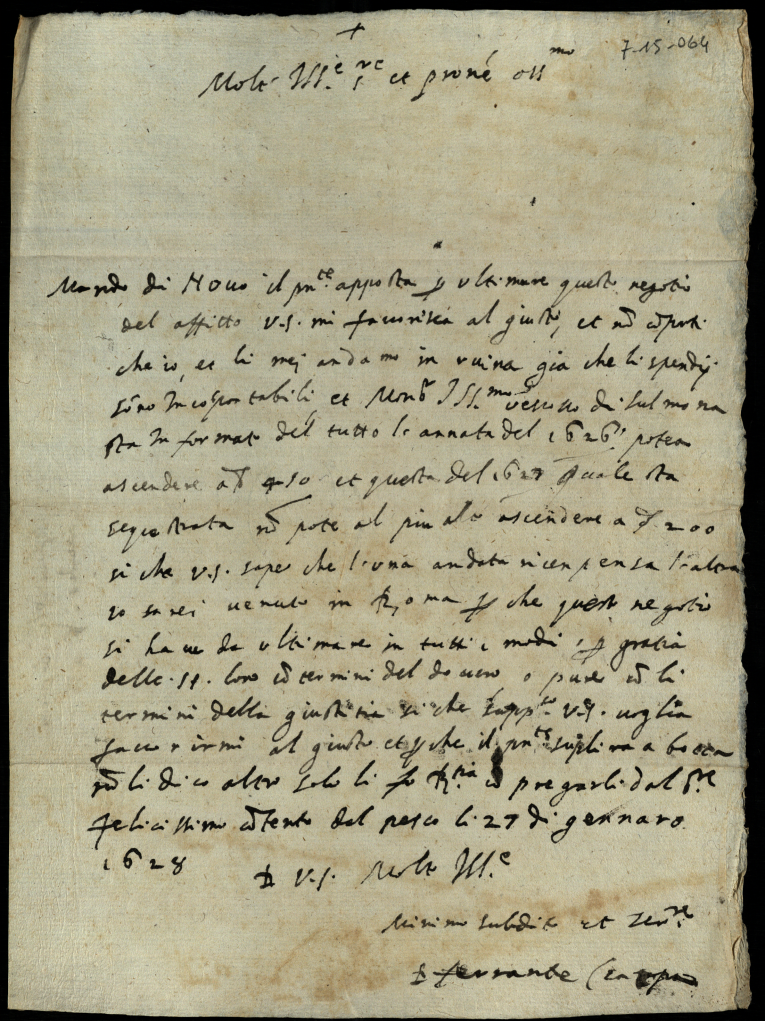 +
7-15-064
Molt' Ill.e s.re et prone oss.mo
Mando di novo il pnte apposta p ultimare questo negotio
del affitto V.S. mi favorisca al giusto, et nō cōporti
che io, et li mei andamo in ruina gia che li spendij
sōno Incōportabili, et Mons.r Ill.mo vescovo di Sulmona
sta Informato del tutto l'annata del 1626 potea
ascendere a 450 et questa del 1627 quale sta
sequestrata nō pote al piu alto ascendere a 200
si che V.S. sape che l'una andata ricenpensa l'altra
io sarei venuto in Roma p che questo negotio
si have da ultimare in tutti i modi, o p gratia
delle SS. loro cō termini del dovero o pure cō li
termini della giustitia si che supp.to V.S. voglia
favorirmi al giusto et p che il pnte suplira a bocca
nō li dico altro solo li fo R.tia cō pregarli dal S.re
felicissimo cōtento dal pesco li 27 di gennaro
1628
D V.S. Molt' Ill.e
Minimo subdito et ser.re
D ferrante